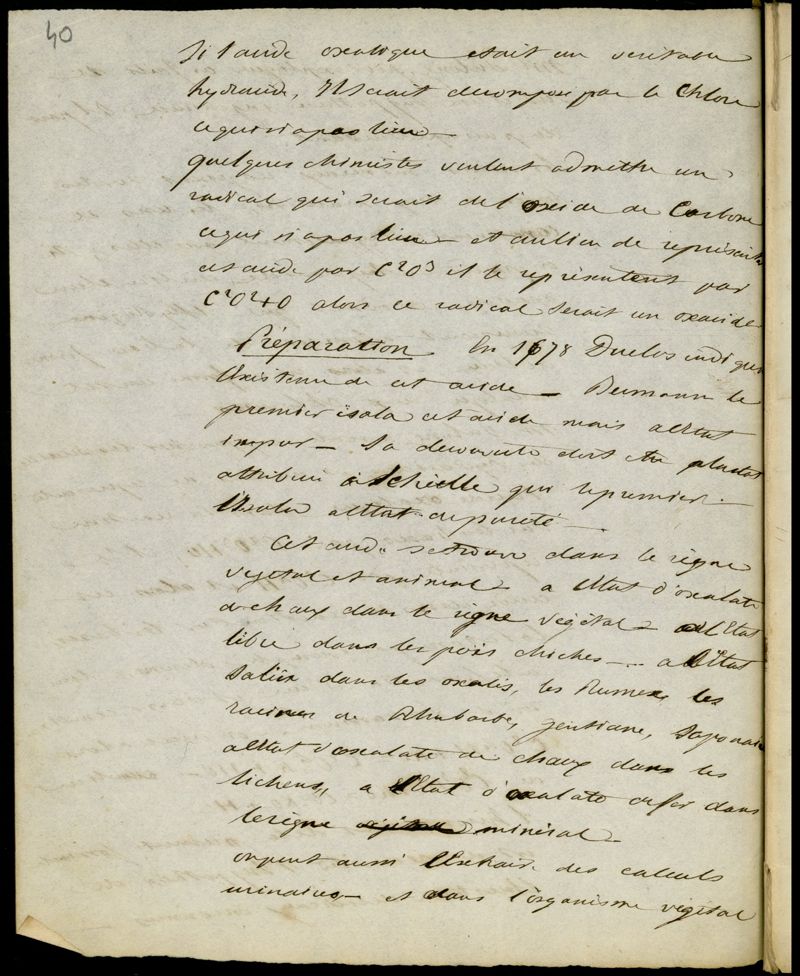 40
Si l'acide oxalique etait un veritable
hydracide, Il serait decomposé par le Chlore
ce qui n'a pas lieu —
quelques chimistes veulent admettre un
radical qui serait de l'oxide de Carbone
ce qui n'a pas lieu — et au lieu de représenter
cet acide par C²O³ il le représentent par
C²O²+O alors ce radical serait un oxacide
Préparation En 1678 Duclos indiqua
l'existence de cet acide — le
premier isola cet acide mais a l'état
impur — Sa decouverte doit etre plutot
attribué à Schéelle qui le premier
l'isola a l'état de pureté —
Cet acide se trouve dans le règne
végétal et animal — a l'état d'oxalate
de chaux dans le règne végétal — a l'Etat
libre dans les pois chiches — a l'Etat
salin dans les oxalis, les Rumex, les
racines de Rhubarbe, gentiane, Saponaire
a l'état d'oxalate de chaux dans les
lichens, a l'Etat d'oxalate de fer dans
le règne minéral —
on peut aussi l'Extraire des calculs
urinaires — et dans l'organisme végétal